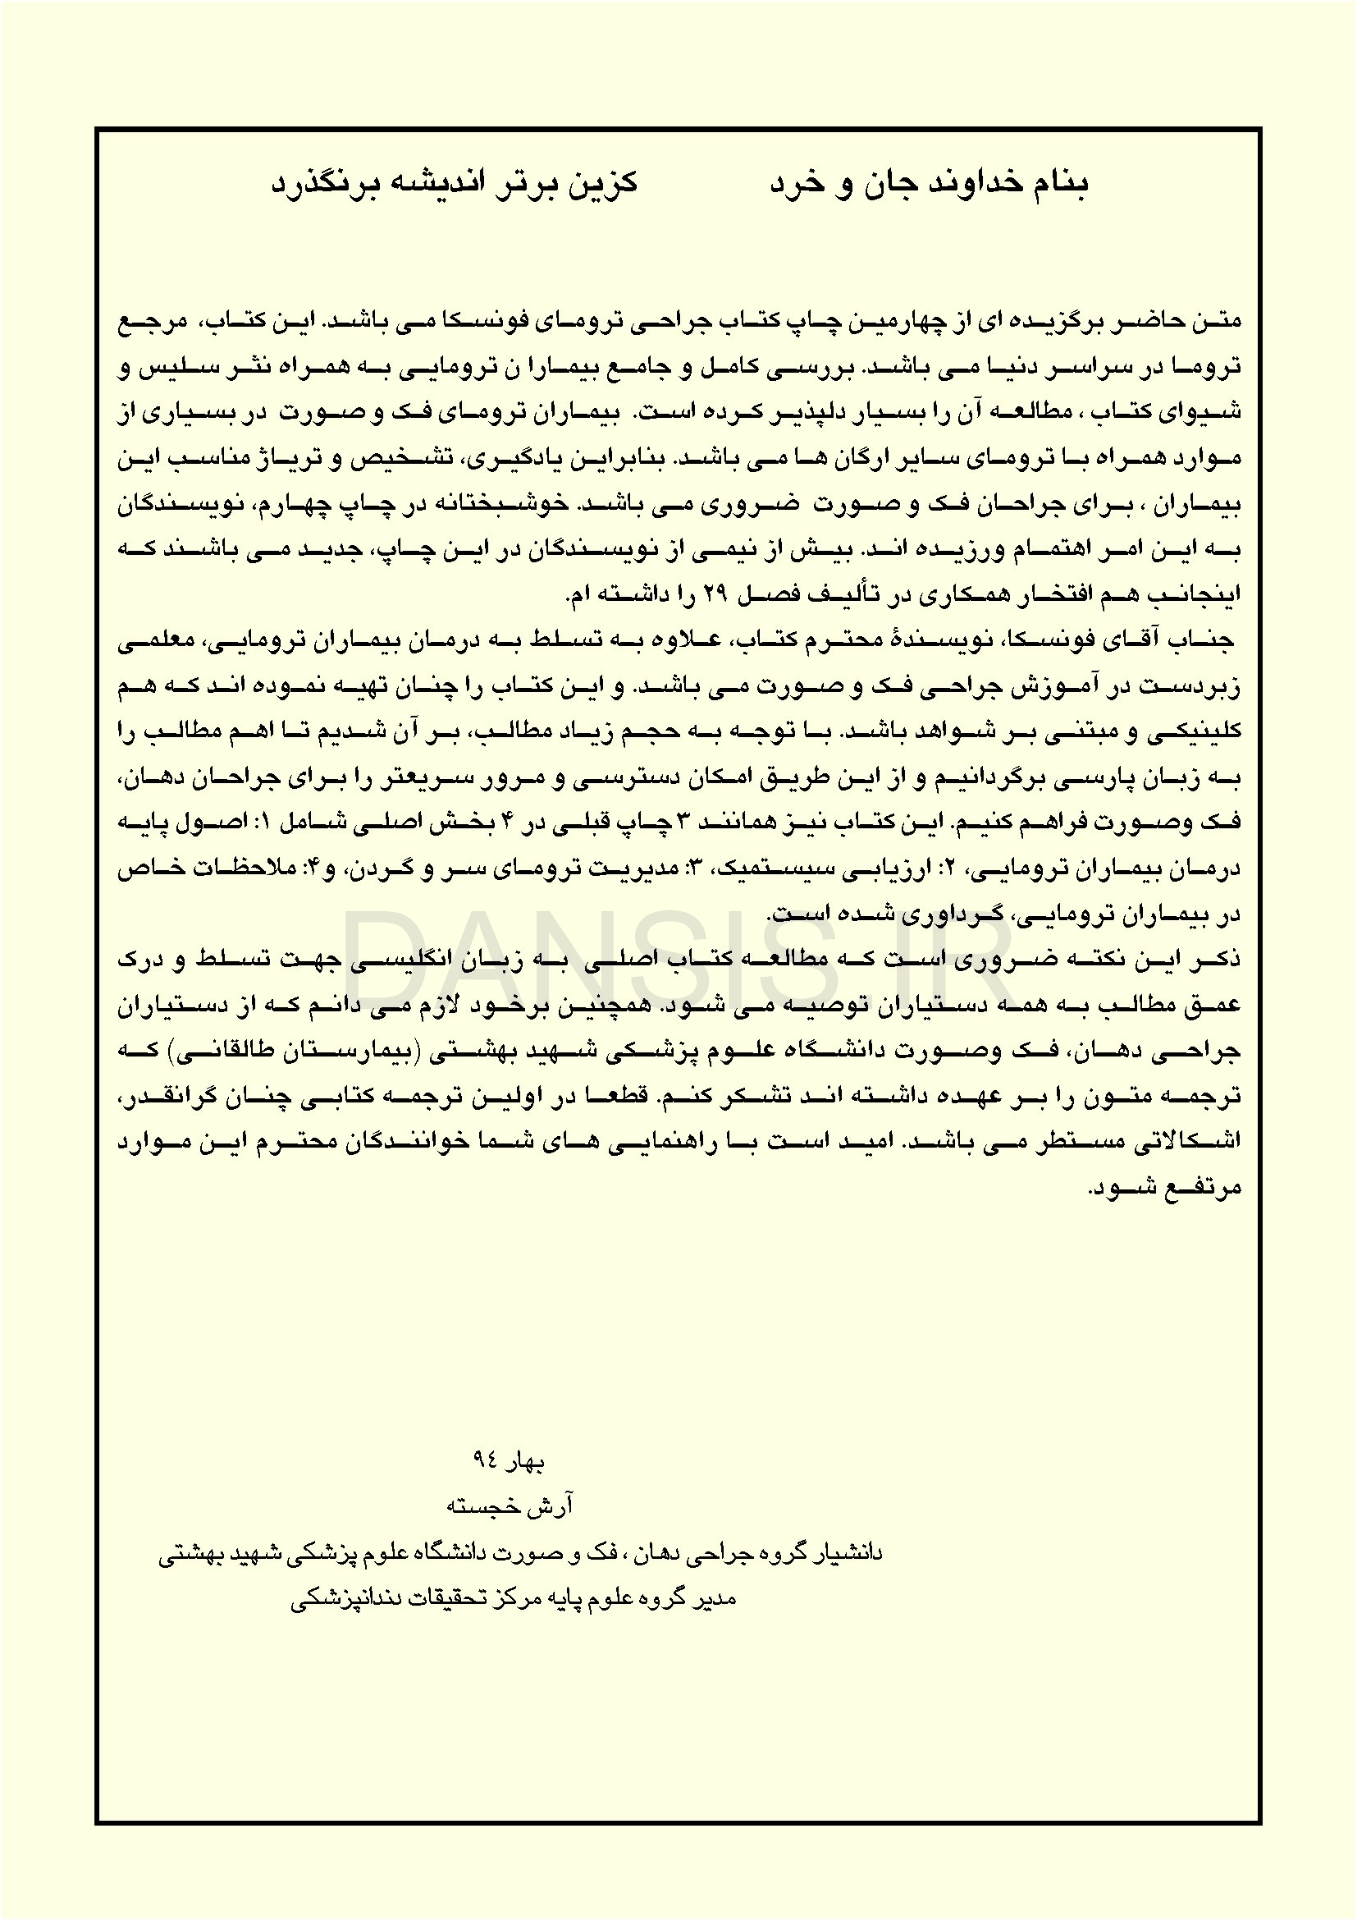 بنام خداوند جان و خرد کزین برتر اندیشه برنگذرد
متن حاضر برگزیده ای از چهارمین چاپ کتاب جراحی ترومای فونسکا می باشد. این کتاب، مرجع
تروما در سراسر دنیا می باشد. بررسی کامل و جامع بیمارا ن ترومایی به همراه نثر سلیس و
شیوای کتاب ، مطالعه آن را بسیار دلپذیر کرده است. بیماران ترومای فک و صورت در بسیاری از
موارد همراه با ترومای سایر ارگان ها می باشد. بنابراین یادگیری، تشخیص و تریاژ مناسب این
بیماران ، برای جراحان فک و صورت ضروری می باشد. خوشبختانه در چاپ چهارم، نویسندگان
به این امر اهتمام ورزیده اند. بیش از نیمی از نویسندگان در این چاپ، جدید می باشند که
اینجانب هم افتخار همکاری در تألیف فصل ۲۹ را داشته ام.
جناب آقای فونسکا، نویسندۀ محترم کتاب، علاوه به تسلط به درمان بیماران ترومایی، معلمی
زبردست در آموزش جراحی فک و صورت می باشد. و این کتاب را چنان تهیه نموده اند که هم
کلینیکی و مبتنی بر شواهد باشد. با توجه به حجم زیاد مطالب، بر آن شدیم تا اهم مطالب را
به زبان پارسی برگردانیم و از این طریق امکان دسترسی و مرور سریعتر را برای جراحان دهان،
فک وصورت فراهم کنیم. این کتاب نیز همانند ۳ چاپ قبلی در ۴ بخش اصلی شامل ۱: اصول پایه
درمان بیماران ترومایی، ۲: ارزیابی سیستمیک، ۳: مدیریت ترومای سر و گردن، و۴: ملاحظات خاص
در بیماران ترومایی، گرداوری شده است.
ذکر این نکته ضروری است که مطالعه کتاب اصلی به زبان انگلیسی جهت تسلط و درک
عمق مطالب به همه دستیاران توصیه می شود. همچنین برخود لازم می دانم که از دستیاران
جراحی دهان، فک وصورت دانشگاه علوم پزشکی شهید بهشتی (بیمارستان طالقانی) که
ترجمه متون را بر عهده داشته اند تشکر کنم. قطعا در اولین ترجمه کتابی چنان گرانقدر،
اشکالاتی مستطر می باشد. امید است با راهنمایی های شما خوانندگان محترم این موارد
مرتفع شود.
DANSIS.IR
بهار ٩٤
آرش خجسته
دانشیار گروه جراحی دهان ، فک و صورت دانشگاه علوم پزشکی شهید بهشتی
مدیر گروه علوم پایه مرکز تحقیقات دندانپزشکی